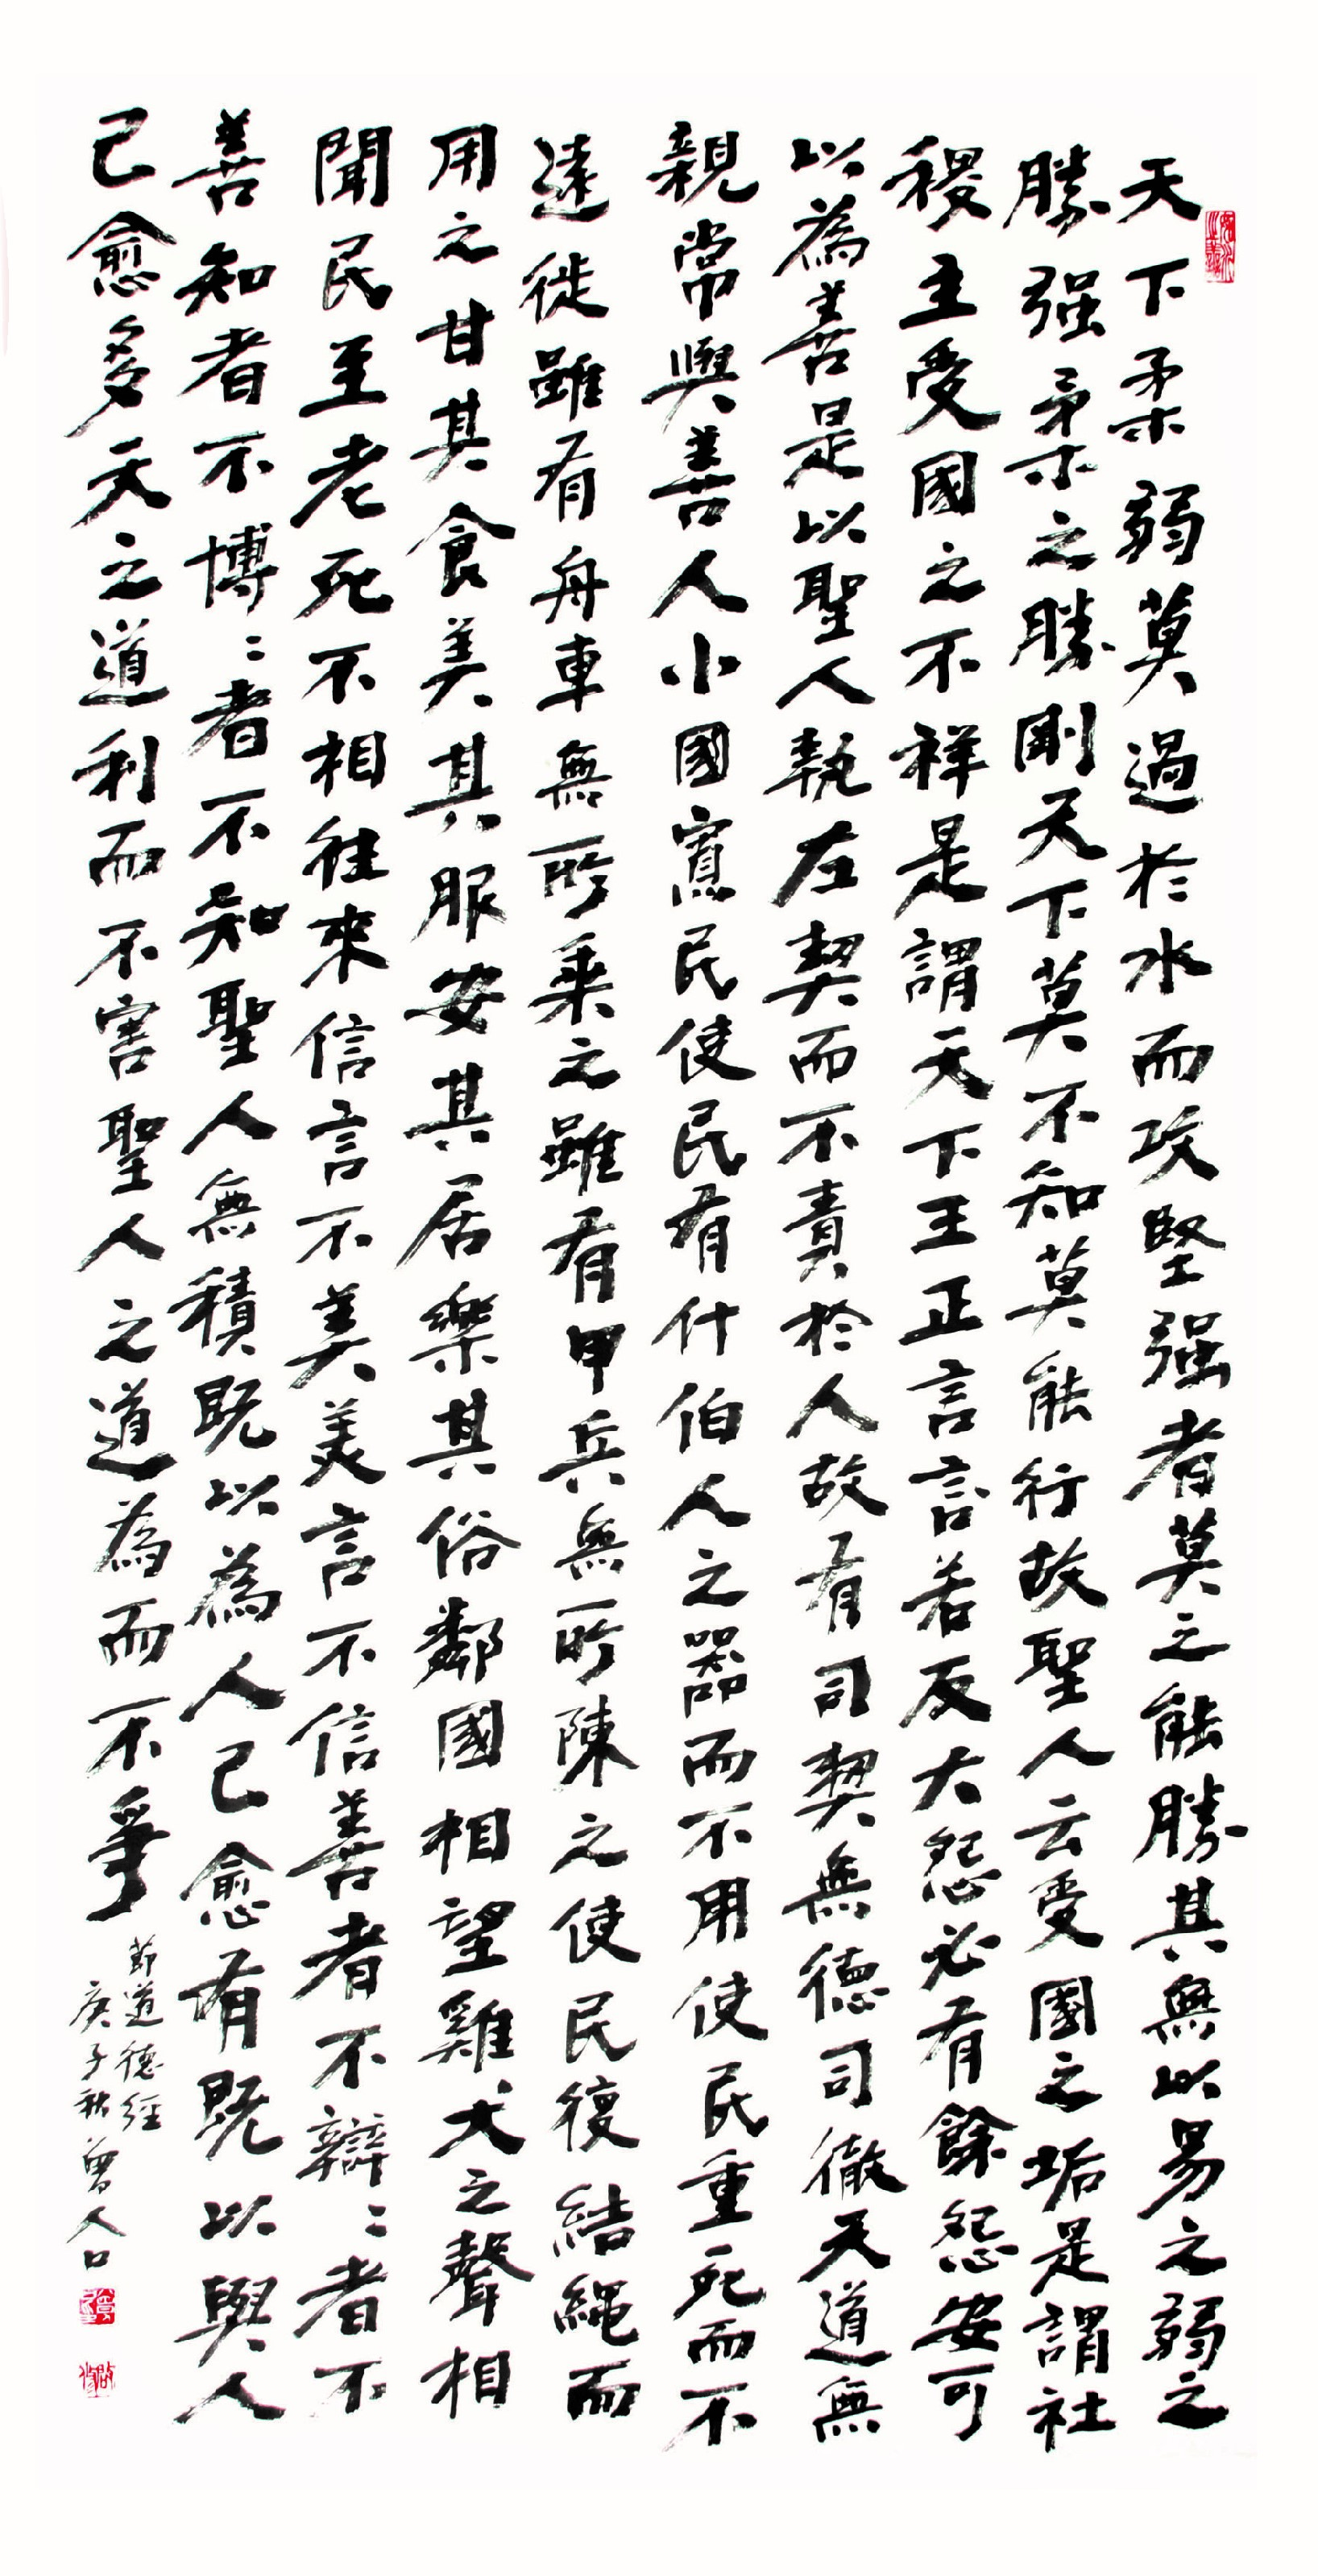 天下柔弱莫過於水而攻堅强者莫之能勝其無以易之弱之
勝强柔之勝剛天下莫不知莫能行故聖人云受國之垢是謂社
稷主受國之不祥是謂天下王正言言若反大怨必有餘怨安可
以為善是以聖人執左契而不責於人故有司契無德司徹天道無
親常與善人小國寡民使民有什伯人之器而不用使民重死而不
遠徙雖有舟車無所乘之雖有甲兵無所陳之使民復結繩而
用之甘其食美其服安其居樂其俗鄰國相望雞犬之聲相
聞民至老死不相往來信言不美美言不信善者不辯〻者不
善知者不博〻者不知聖人無積既以為人己愈有既以與人
己愈多天之道利而不害聖人之道為而不爭
節道德經
庚子秋曾人口